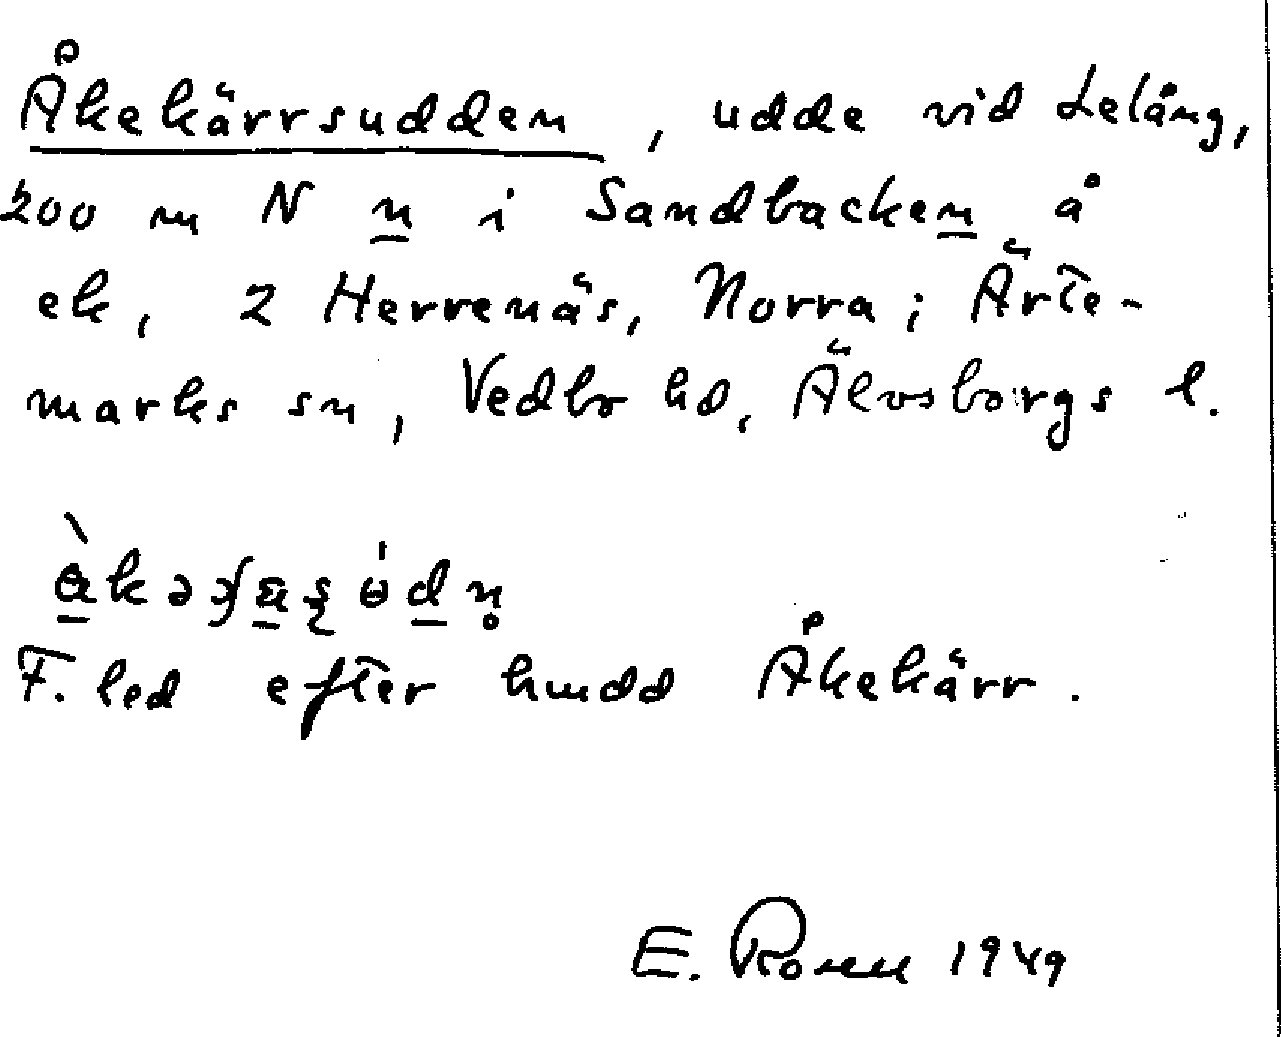 Åkekärrsudden, udde vid Lelång,
200 m N n i Sandbacken å
ek, 2 Herrenäs, Norra; Ärte-
marks sn, Vedbo hd, Älvsborgs l.
F. led efter hmdd Åkekärr.
E. 1949